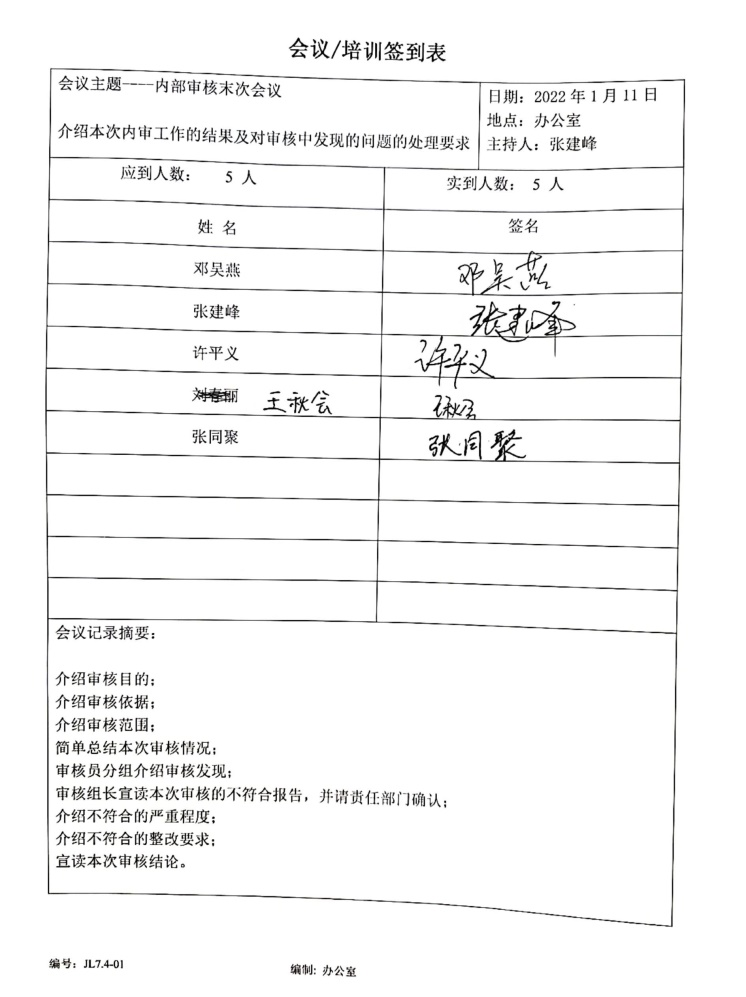 会议/培训签到表
会议主题----内部审核末次会议
介绍本次内审工作的结果及对审核中发现的问题的处理要求
日期：2022 年 1 月 11 日
地点：办公室
主持人：张建峰
应到人数： 5 人
实到人数： 5 人
姓 名
签名
邓吴燕
邓吴燕
张建峰
张建峰
许平义
许平义
刘春丽 王秋会
王秋会
张同聚
张同聚
会议记录摘要：
介绍审核目的；
介绍审核依据；
介绍审核范围；
简单总结本次审核情况；
审核员分组介绍审核发现；
审核组长宣读本次审核的不符合报告，并请责任部门确认；
介绍不符合的严重程度；
介绍不符合的整改要求；
宣读本次审核结论。
编号：JL7.4-01
编制: 办公室